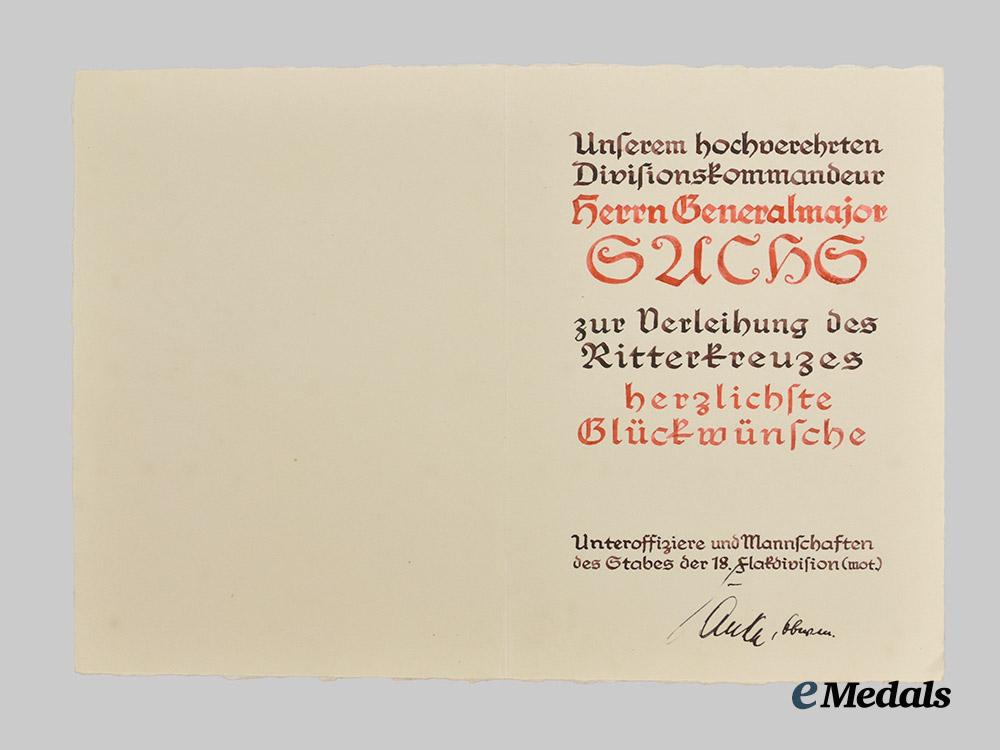 Unſerem hochverehrten
Diviſionskommandeur
Herrn Generalmajor
SACHS
zur Verleihung des
Ritterkreuzes
herzlichſte
Glückwünſche
Unteroffiziere und Mannſchaften
des Stabes der 18. Flakdiviſion (mot.)
eMedals